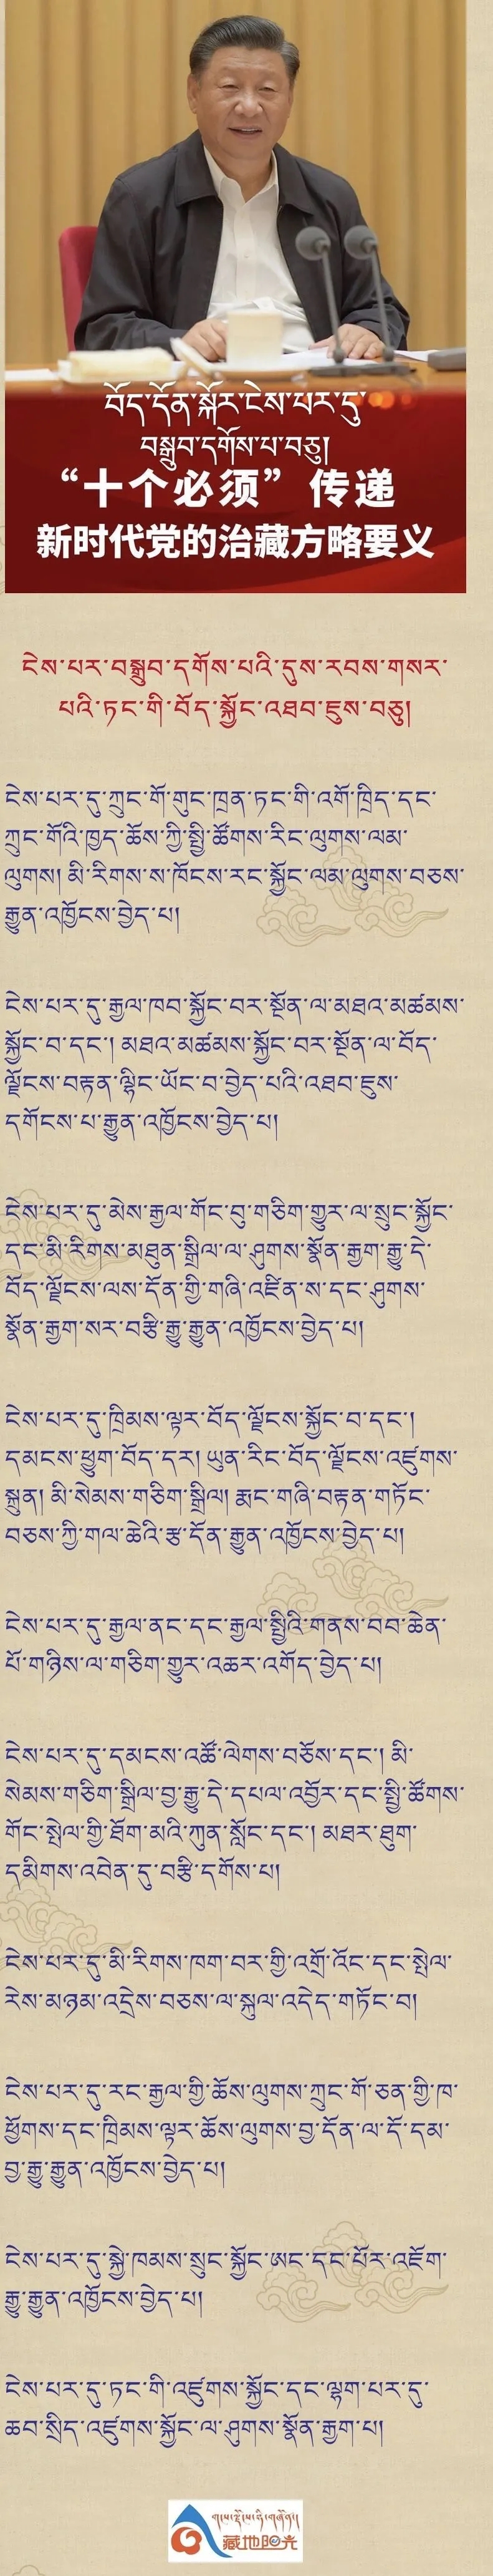 བོད་དོན་སྐོར་ངེས་པར་དུ་
བསྒྲུབ་དགོས་པ་བཅུ།
“十个必须”传递
新时代党的治藏方略要义
ངེས་པར་བསྒྲུབ་དགོས་པའི་དུས་རབས་གསར་
པའི་ཏང་གི་བོད་སྐྱོང་འཐབ་ཇུས་བཅུ།
ངེས་པར་དུ་ཀྲུང་གོ་གུང་ཁྲན་ཏང་གི་འགོ་ཁྲིད་དང་
ཀྲུང་གོའི་ཁྱད་ཆོས་ཀྱི་སྤྱི་ཚོགས་རིང་ལུགས་ལམ་
ལུགས། མི་རིགས་ས་ཁོངས་རང་སྐྱོང་ལམ་ལུགས་བཅས་
རྒྱུན་འཁྱོངས་བྱེད་པ།
ངེས་པར་དུ་རྒྱལ་ཁབ་སྐྱོང་བར་སྔོན་ལ་མཐའ་མཚམས་
སྐྱོང་བ་དང་། མཐའ་མཚམས་སྐྱོང་བར་སྔོན་ལ་བོད་
ལྗོངས་བརྟན་ལྷིང་ཡོང་བ་བྱེད་པའི་འཐབ་ཇུས་
དགོངས་པ་རྒྱུན་འཁྱོངས་བྱེད་པ།
ངེས་པར་དུ་མེས་རྒྱལ་གོང་བུ་གཅིག་གྱུར་ལ་སྲུང་སྐྱོང་
དང་མི་རིགས་མཐུན་སྒྲིལ་ལ་ཤུགས་སྣོན་རྒྱག་རྒྱུ་དེ་
བོད་ལྗོངས་ལས་དོན་གྱི་གཞི་འཛིན་ས་དང་ཤུགས་
སྣོན་རྒྱག་སར་བརྩི་རྒྱུ་རྒྱུན་འཁྱོངས་བྱེད་པ།
ངེས་པར་དུ་ཁྲིམས་ལྟར་བོད་ལྗོངས་སྐྱོང་བ་དང་།
དམངས་ཕྱུག་བོད་དར། ཡུན་རིང་བོད་ལྗོངས་འཛུགས་
སྐྲུན། མི་སེམས་གཅིག་སྒྲིལ། རྨང་གཞི་བརྟན་གཏོང་
བཅས་ཀྱི་གལ་ཆེའི་རྩ་དོན་རྒྱུན་འཁྱོངས་བྱེད་པ།
ངེས་པར་དུ་རྒྱལ་ནང་དང་རྒྱལ་སྤྱིའི་གནས་བབ་ཆེན་
པོ་གཉིས་ལ་གཅིག་གྱུར་འཆར་འགོད་བྱེད་པ།
ངེས་པར་དུ་དམངས་འཚོ་ལེགས་བཅོས་དང་། མི་
སེམས་གཅིག་སྒྲིལ་བྱ་རྒྱུ་དེ་དཔལ་འབྱོར་དང་སྤྱི་ཚོགས་
གོང་སྤེལ་གྱི་ཐོག་མའི་ཀུན་སློང་དང་། མཐར་ཐུག་
དམིགས་འབེན་དུ་བརྩི་དགོས་པ།
ངེས་པར་དུ་མི་རིགས་ཁག་བར་གྱི་འགྲོ་འོང་དང་སྤེལ་
རེས་མཉམ་འདྲེས་བཅས་ལ་སྐུལ་འདེད་གཏོང་བ།
ངེས་པར་དུ་རང་རྒྱལ་གྱི་ཆོས་ལུགས་ཀྲུང་གོ་ཅན་གྱི་ཁ་
ཕྱོགས་དང་ཁྲིམས་ལྟར་ཆོས་ལུགས་བྱ་དོན་ལ་དོ་དམ་
བྱ་རྒྱུ་རྒྱུན་འཁྱོངས་བྱེད་པ།
ངེས་པར་དུ་སྐྱེ་ཁམས་སྲུང་སྐྱོང་ཨང་དང་པོར་འཇོག་
རྒྱུ་རྒྱུན་འཁྱོངས་བྱེད་པ།
ངེས་པར་དུ་ཏང་གི་འཛུགས་སྐྱོང་དང་ལྷག་པར་དུ་
ཆབ་སྲིད་འཛུགས་སྐྱོང་ལ་ཤུགས་སྣོན་རྒྱག་པ།
藏地阳光